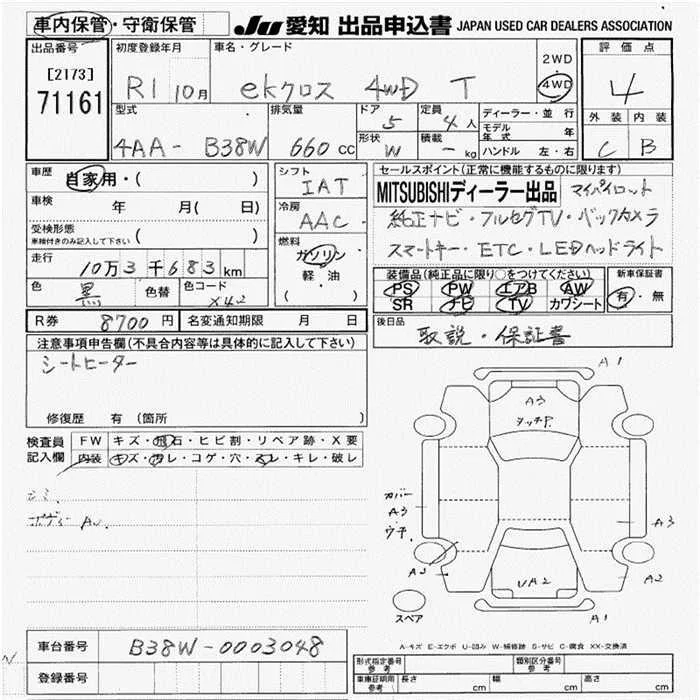 車内保管・守衛保管 JU 愛知 出品申込書 JAPAN USED CAR DEALERS ASSOCIATION
出品番号 初度登録年月 車名・グレード 評価点
[2173] R1 10月 ekクロス 4WD T 2WD 4WD 4
71161
型式 排気量 ドア 定員 ディーラー・並行 外装 内装
5 4人 モデル年式 年
4AA- B38W 660cc 形状 W 積載 - kg ハンドル 左・右 C B
車歴 自家用・( ) シフト IAT セールスポイント(正常に機能するものに限ります)
車検 年 月( 日) 冷房 AAC MITSUBISHIディーラー出品 マイパイロット
受検形態 ( ) 純正ナビ・フルセグTV・バックカメラ
車検付きのみ記入して下さい
走行 10万3千683km 燃料 ガソリン スマートキー・ETC・LEDヘッドライト
色 黒 色替 色コード X42 軽・油 ( )
装備品(純正品に限り○をつけてください) 新車保証書
PS PW エアB AW 有・無
SR ナビ TV カワシート
R券 8700円 名変通知期限 月 日 後日品 取説・保証書
注意事項申告欄(不具合内容等は具体的に記入して下さい)
シートヒーター
修復歴 有 (箇所 )
検査員記入欄 FW キズ・飛石・ヒビ割・リペア跡・X要
内装 キズ・汚レ・コゲ・穴・スレ・キレ・破レ
A1
A3
タッチP.
カバー
A3
A3
A2
UA2
A2
スペア
A1
車台番号 B38W-0003048
登録番号
A-キズ E-エクボ U-凹み W-補修跡 S-サビ C-腐食 XX-交換済
形式指定番号 参考 類別区分番号 参考
車庫証明用 参考 長さ cm 幅 cm 高さ cm